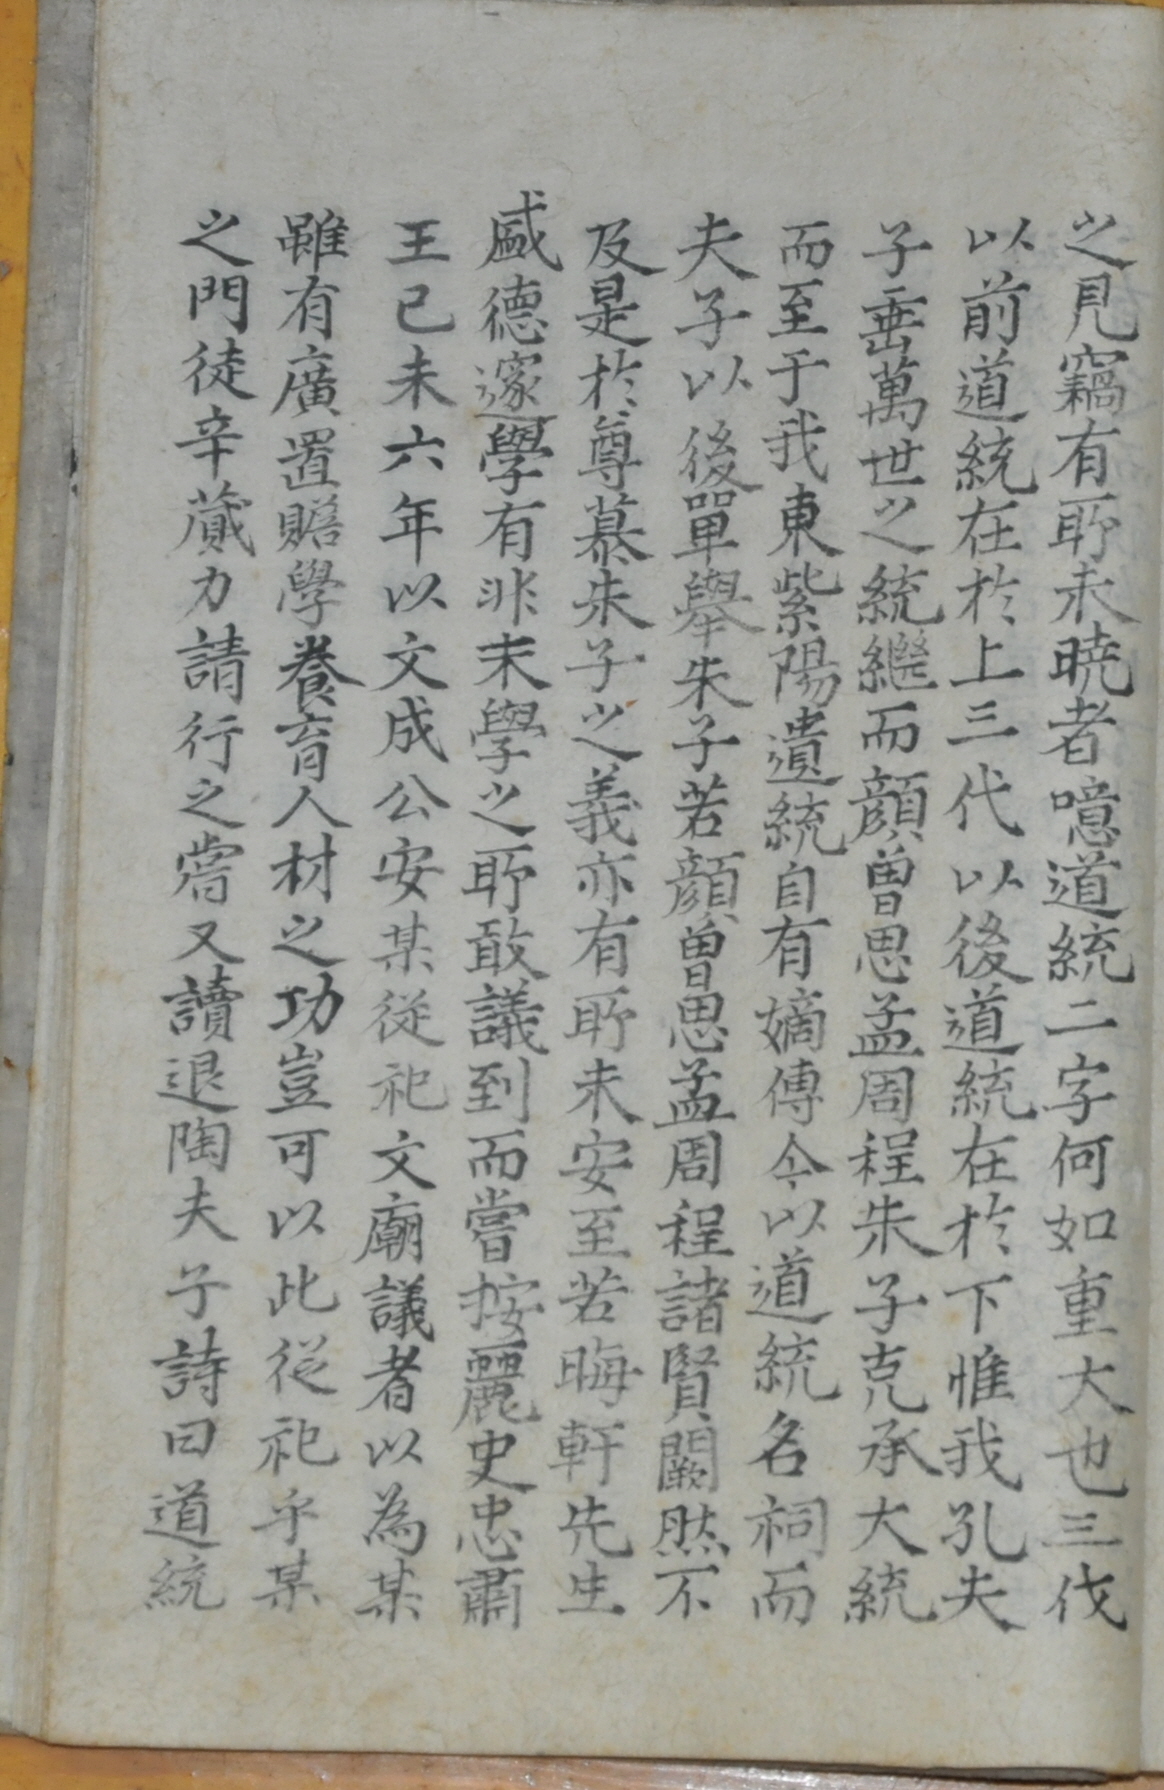 之見竊有所未曉者噫道統二字何如重大也三代
以前道統在於上三代以後道統在於下惟我孔夫
子垂萬世之統繼而顔曾思孟周程朱子克承大統
而至于我東紫陽遺統自有嫡傳今以道統名祠而
夫子以後單舉朱子若顔曾思孟周程諸賢闕然不
及是於尊慕朱子之義亦有所未安至若晦軒先生
盛德邃學有非末學之所敢議到而嘗按麗史忠肅
王己未六年以文成公安某從祀文廟議者以為某
雖有廣置贍學養育人材之功豈可以此從祀乎某
之門徒辛蕆力請行之嘗又讀退陶夫子詩曰道統